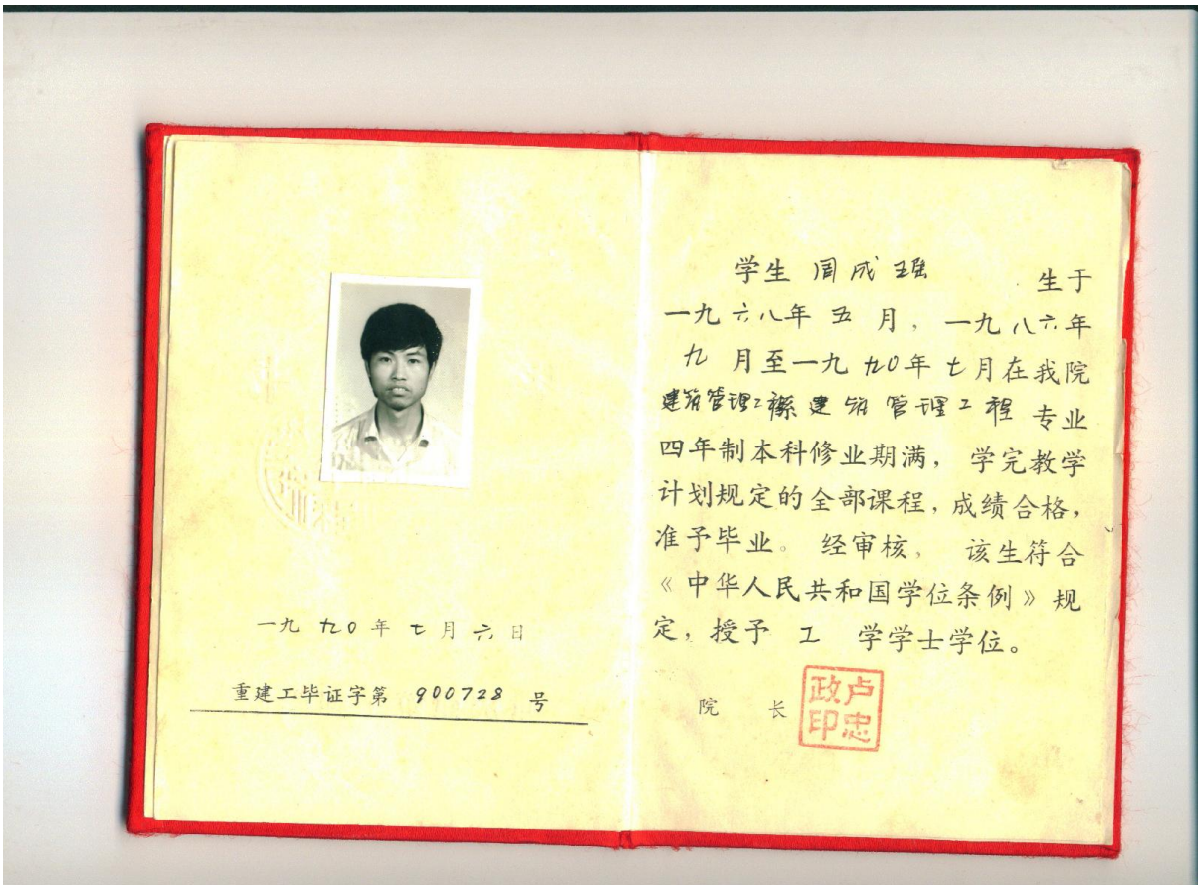 一九九0年七月六日
重建工毕证字第 900728 号
学生 周成 生于
一九六八年 五 月，一九八六年
九 月至一九九0年七月在我院
建筑管理工程系建筑管理工程 专业
四年制本科修业期满， 学完教学
计划规定的全部课程，成绩合格，
准予毕业。 经审核， 该生符合
《中华人民共和国学位条例》规
定，授予 工 学学士学位。
院 长
卢忠政印